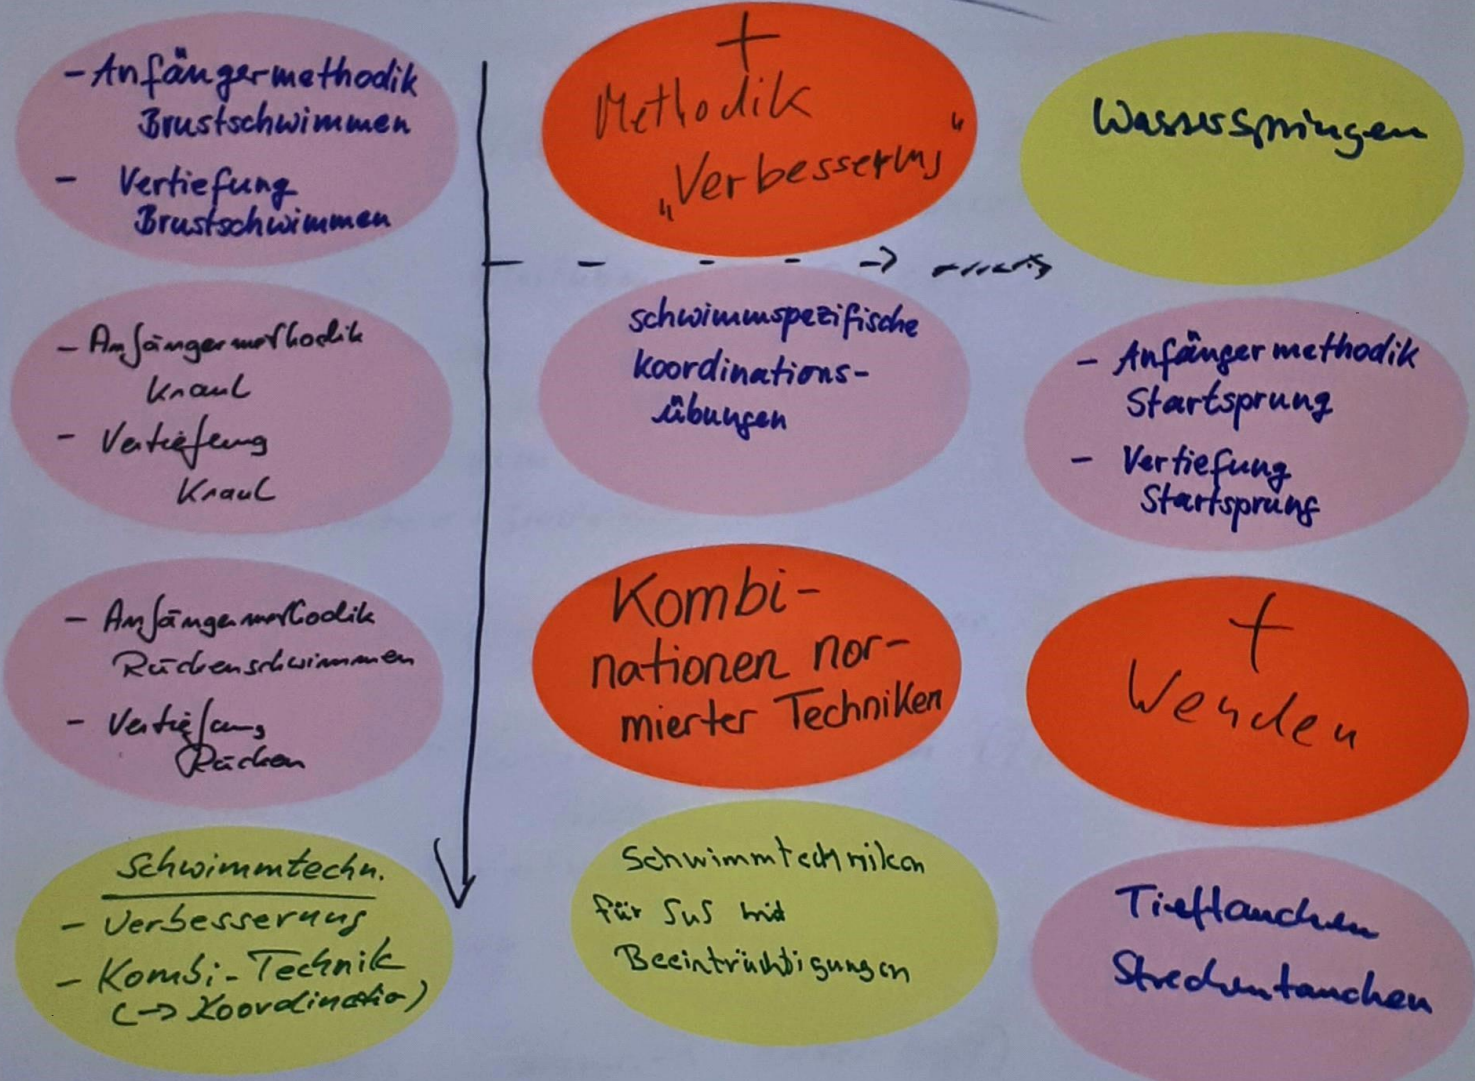 - Anfängermethodik
Brustschwimmen
- Vertiefung
Brustschwimmen
- Anfängermethodik
Kraul
- Vertiefung
Kraul
- Anfängermethodik
Rückenschwimmen
- Vertiefung
Rücken
Schwimmtechn.
- Verbesserung
- Kombi-Technik
(-> Koordination)
+
Methodik
„Verbesserung“
schwimmspezifische
Koordinations-
übungen
Kombi-
nationen nor-
mierter Techniken
Schwimmtechniken
für SuS mit
Beeinträchtigungen
Wasserspringen
- Anfängermethodik
Startsprung
- Vertiefung
Startsprung
+
Wenden
Tieftauchen
Streckentauchen